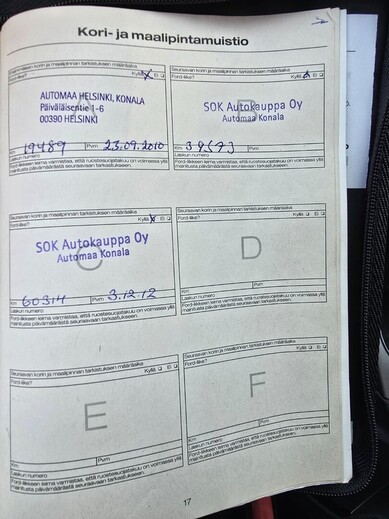 Kori- ja maalipintamuistio
Seuraavan korin ja maalipinnan tarkastuksen määräaika
Ford-liike? Kyllä X Ei
AUTOMAA HELSINKI, KONALA
Päiväläisentie 1-6
00390 HELSINKI
Km 19489 Pvm 23.09.2010
Laskun numero
Ford-liikkeen leima varmistaa, että ruostesuojatakuu on voimassa yllä
mainitusta päivämäärästä seuraavaan tarkastukseen.
Seuraavan korin ja maalipinnan tarkastuksen määräaika
Ford-liike? Kyllä Ei
B
SOK Autokauppa Oy
Automaa Konala
Km Pvm
Laskun numero
Ford-liikkeen leima varmistaa, että ruostesuojatakuu on voimassa yllä
mainitusta päivämäärästä seuraavaan tarkastukseen.
Seuraavan korin ja maalipinnan tarkastuksen määräaika
Ford-liike? Kyllä X Ei
C
SOK Autokauppa Oy
Automaa Konala
Km 60314 Pvm 3.12.12
Laskun numero
Ford-liikkeen leima varmistaa, että ruostesuojatakuu on voimassa yllä
mainitusta päivämäärästä seuraavaan tarkastukseen.
Seuraavan korin ja maalipinnan tarkastuksen määräaika
Ford-liike? Kyllä Ei
D
Km Pvm
Laskun numero
Ford-liikkeen leima varmistaa, että ruostesuojatakuu on voimassa yllä
mainitusta päivämäärästä seuraavaan tarkastukseen.
Seuraavan korin ja maalipinnan tarkastuksen määräaika
Ford-liike? Kyllä Ei
E
Km Pvm
Laskun numero
Ford-liikkeen leima varmistaa, että ruostesuojatakuu on voimassa yllä
mainitusta päivämäärästä seuraavaan tarkastukseen.
Seuraavan korin ja maalipinnan tarkastuksen määräaika
Ford-liike? Kyllä Ei
F
Km Pvm
Laskun numero
Ford-liikkeen leima varmistaa, että ruostesuojatakuu on voimassa yllä
mainitusta päivämäärästä seuraavaan tarkastukseen.
17